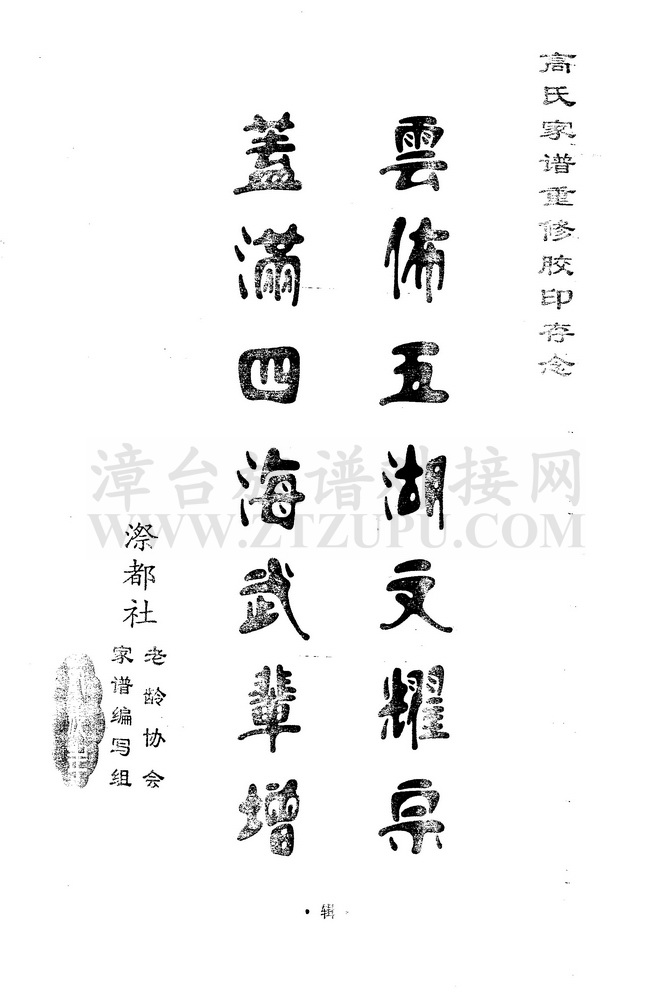 高氏家谱重修胶印存念
雲佈五湖文耀宗
蓋滿四海武輩增
漈都社
老龄协会
家谱编写组
· 辑 ·
漳台族谱对接网
WWW.ZTZUPU.COM